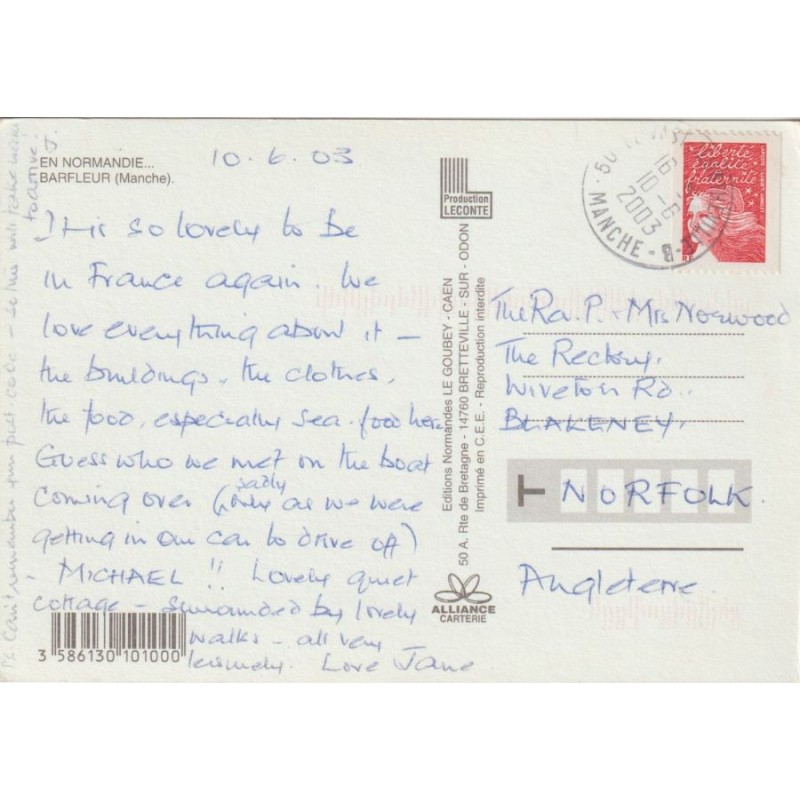 EN NORMANDIE...
BARFLEUR (Manche).
10.6.03
It is so lovely to be
in France again. We
love everything about it –
the buildings, the clothes,
the food, especially sea-food here
Guess who we met on the boat
sadly
coming over (only as we were
getting in our car to drive off)
– MICHAEL !! Lovely quiet
cottage – surrounded by lovely
walks – all very
leisurely. Love Jane
3 586130 101000
PS. Can't remember your post code – so this will take weeks
to arrive! J.
Production
LECONTE
Editions Normandes LE GOUBEY - CAEN
50 A, Rte de Bretagne - 14760 BRETTEVILLE - SUR - ODON
Imprimé en C.E.E. - Reproduction interdite
ALLIANCE
CARTERIE
50
MANCHE
16
10 -6
2003
liberté
égalité
fraternité
RF
The Rev. P. + Mrs Norwood
The Rectory,
Wiveton Rd.
BLAKENEY,
NORFOLK.
Angleterre